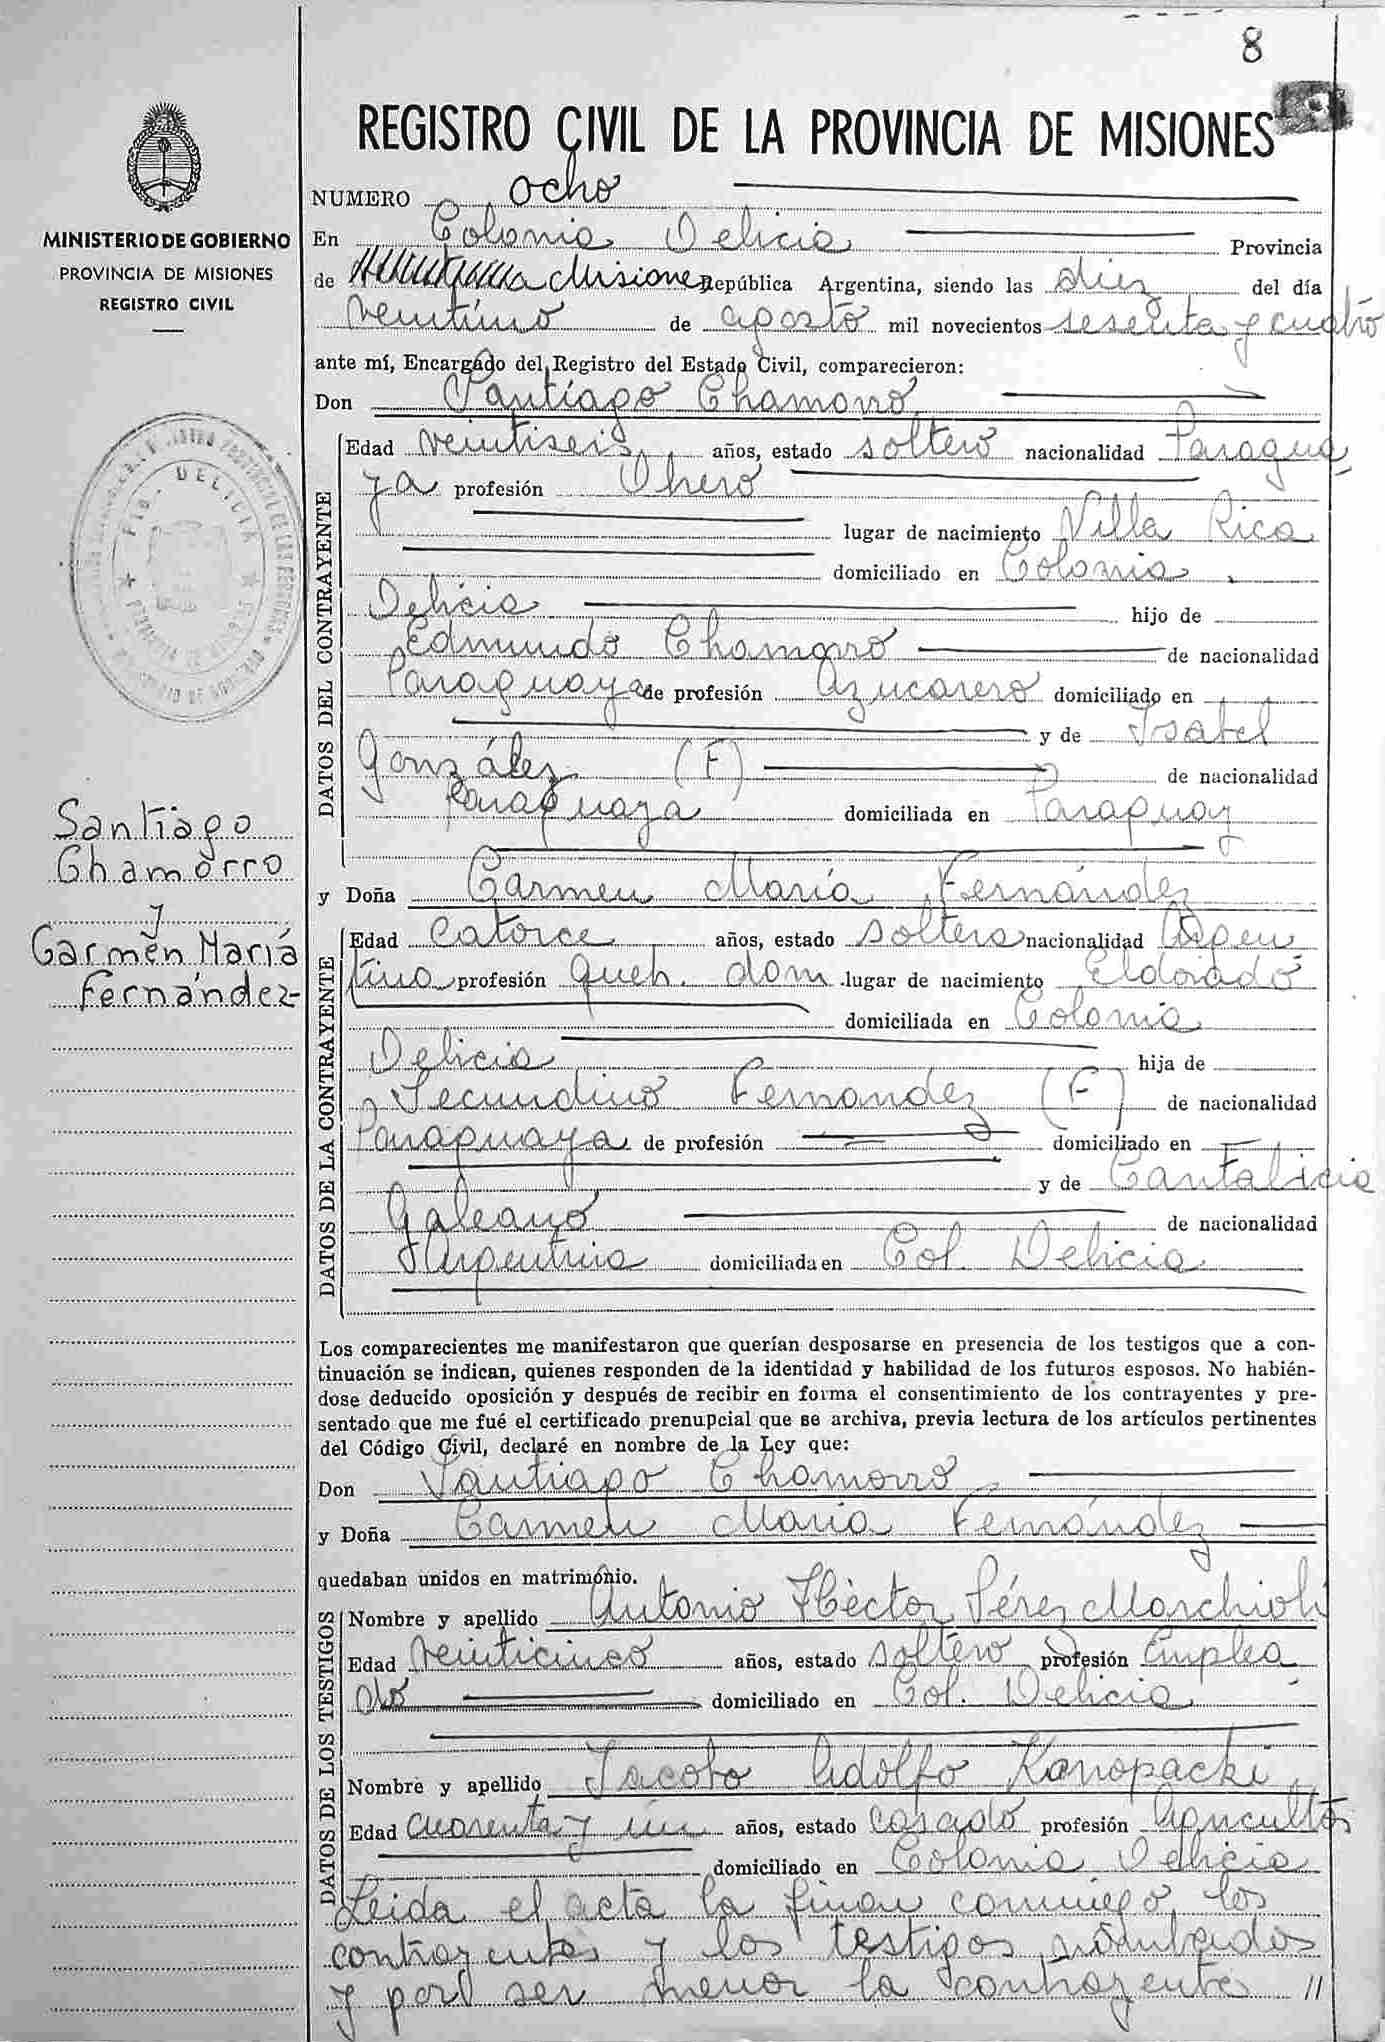 8
REGISTRO CIVIL DE LA PROVINCIA DE MISIONES
MINISTERIO DE GOBIERNO
PROVINCIA DE MISIONES
REGISTRO CIVIL
NUMERO ocho
En Colonia Delicia Provincia
de Misiones República Argentina, siendo las diez del día
veintiuno de agosto mil novecientos sesenta y cuatro
ante mí, Encargado del Registro del Estado Civil, comparecieron:
Don Santiago Chamorro
DATOS DEL CONTRAYENTE
Edad veintiseis años, estado soltero nacionalidad Paragua
ya profesión Obrero
lugar de nacimiento Villa Rica
domiciliado en Colonia
Delicia hijo de
Edmundo Chamorro de nacionalidad
Paraguaya de profesión Azucarero domiciliado en
y de Isabel
González (F) de nacionalidad
Paraguaya domiciliada en Paraguay
DELICIA
Santiago
Chamorro
y
Carmen María
Fernández-
y Doña Carmen María Fernández
DATOS DE LA CONTRAYENTE
Edad Catorce años, estado soltera nacionalidad Argen
tina profesión queh. dom. lugar de nacimiento Eldorado
domiciliada en Colonia
Delicia hija de
Secundino Fernandez (F) de nacionalidad
Paraguaya de profesión domiciliado en
y de Cantalicia
Galeano de nacionalidad
Argentina domiciliada en Col. Delicia
Los comparecientes me manifestaron que querían desposarse en presencia de los testigos que a con-
tinuación se indican, quienes responden de la identidad y habilidad de los futuros esposos. No habién-
dose deducido oposición y después de recibir en forma el consentimiento de los contrayentes y pre-
sentado que me fué el certificado prenupcial que se archiva, previa lectura de los artículos pertinentes
del Código Civil, declaré en nombre de la Ley que:
Don Santiago Chamorro
y Doña Carmen María Fernández
quedaban unidos en matrimonio.
DATOS DE LOS TESTIGOS
Nombre y apellido Antonio Héctor Pérez Marchioli
Edad veinticinco años, estado soltero profesión Emplea
do domiciliado en Col. Delicia
Nombre y apellido Jacobo Adolfo Kanopacki
Edad cuarenta y un años, estado casado profesión Agricultor
domiciliado en Colonia Delicia
Leida el acta la firman conmigo los
contrayentes y los testigos nombrados
y por ser menor la contrayente //